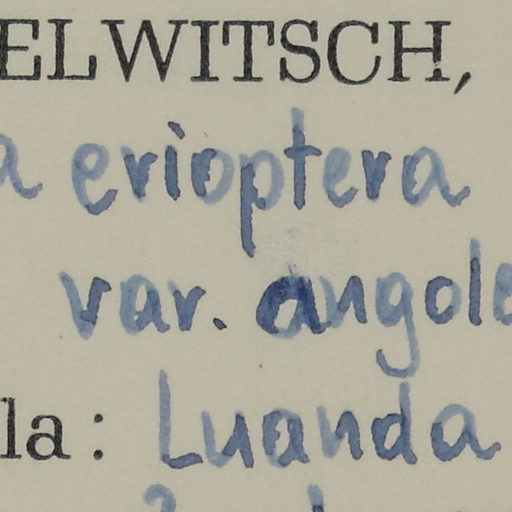 ELWITSCH,
a erioptera
var. angole
la: Luanda